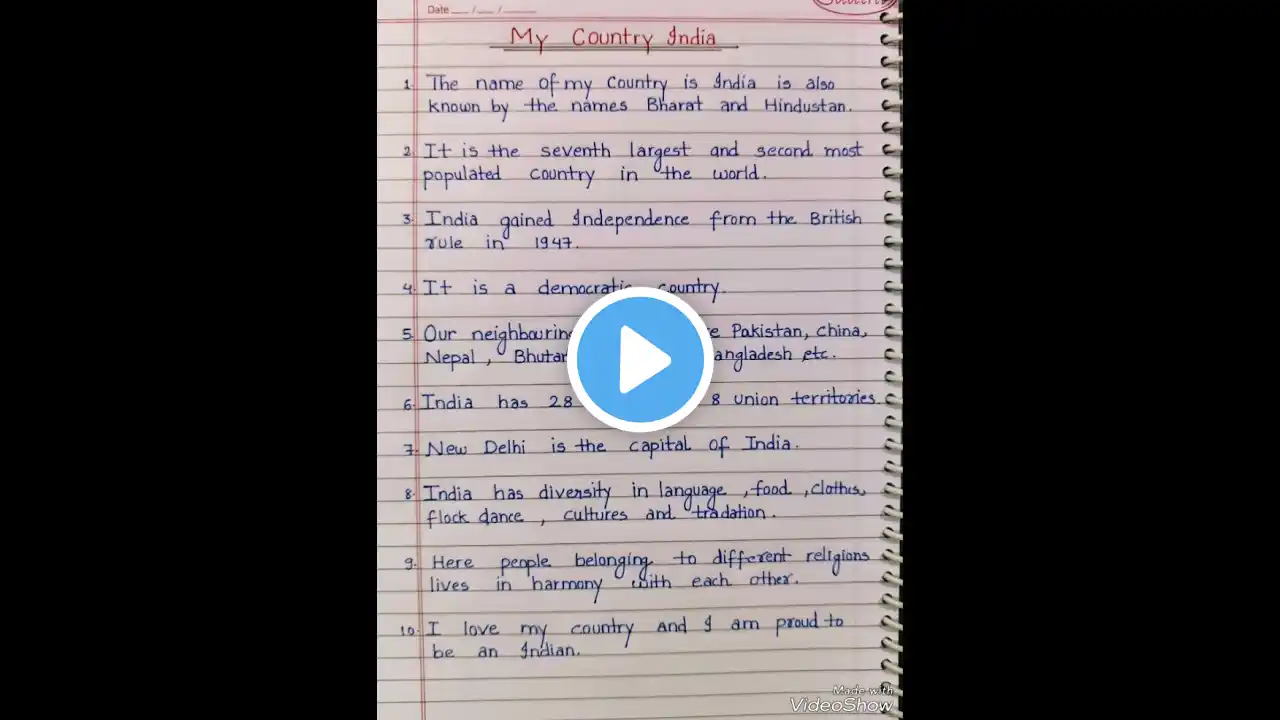 Date __ / __ / ____
My Country India
1. The name of my Country is India is also
known by the names Bharat and Hindustan.
2. It is the seventh largest and second most
populated country in the world.
3. India gained Independence from the British
rule in 1947.
4. It is a democratic country.
5. Our neighbourin Pakistan, china,
Nepal, Bhutan angladesh etc.
6. India has 28 8 union territories.
7. New Delhi is the capital of India.
8. India has diversity in language, food, clothes,
flock dance, cultures and tradation.
9. Here people belonging to different religions
lives in harmony with each other.
10. I love my country and I am proud to
be an Indian.
Made with
VideoShow